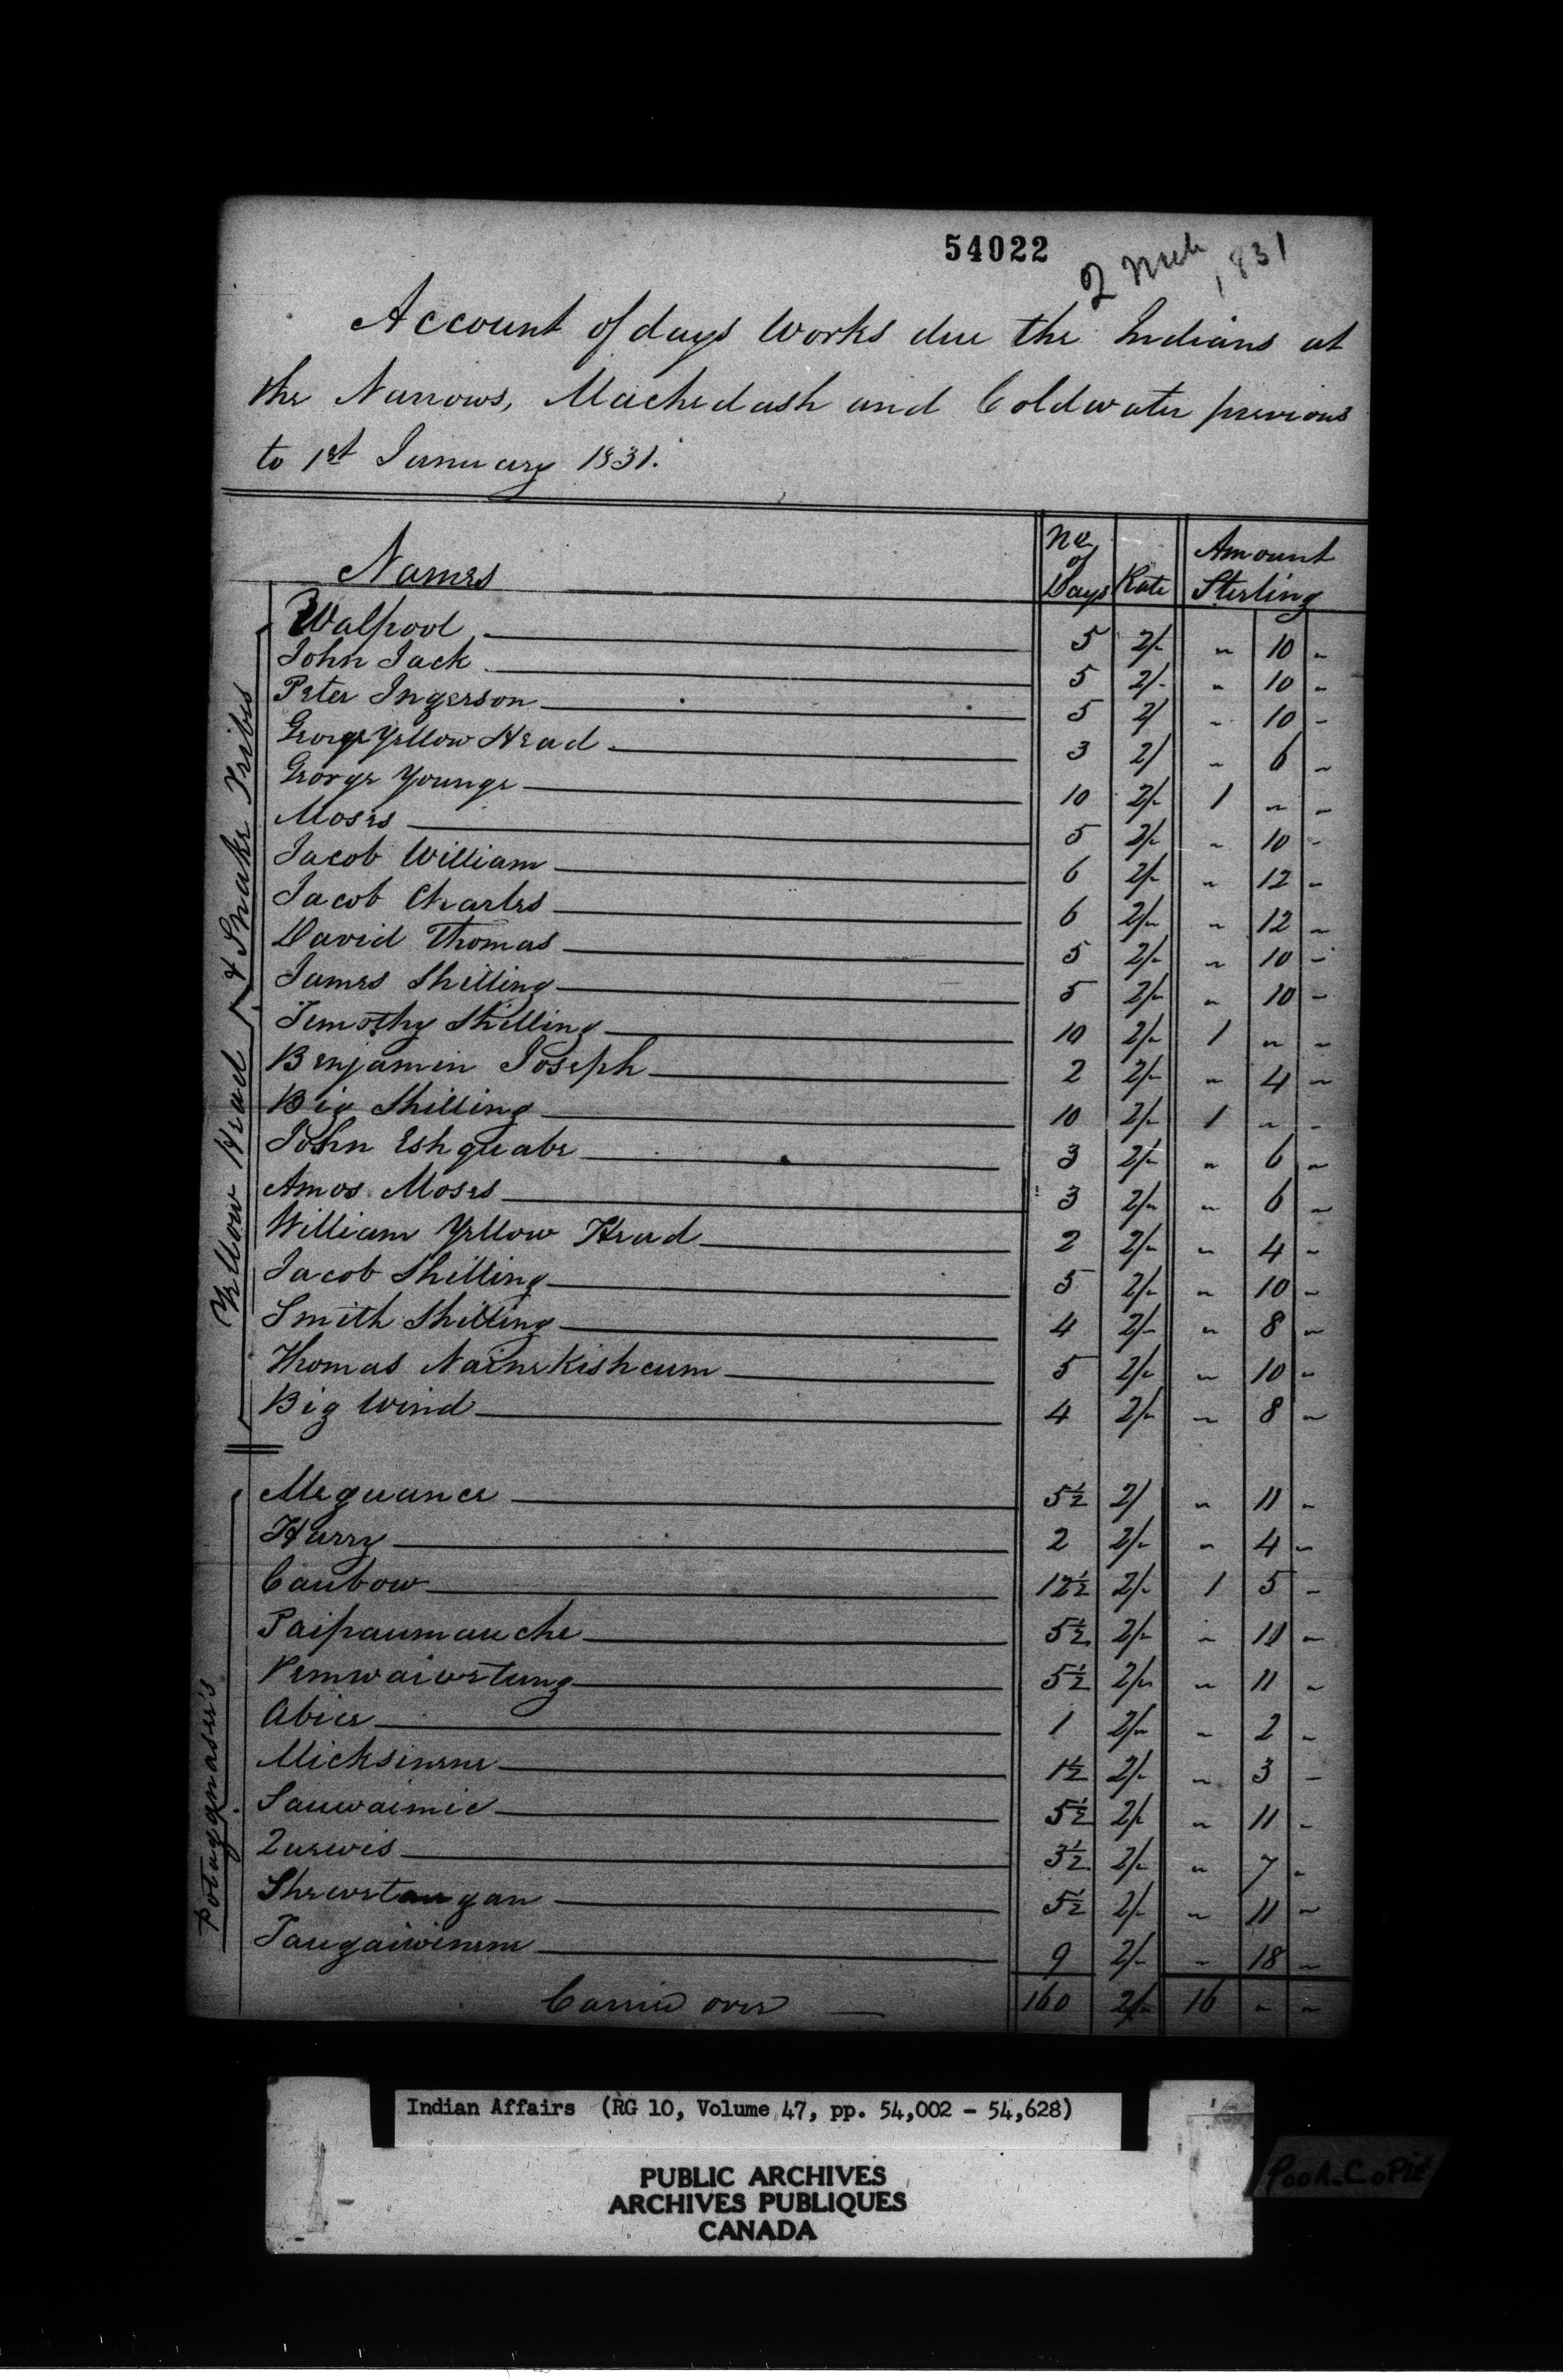 54022
2 Mch 1831
Account of days Works due the Indians at
the Narrows, Machedash and Coldwater previous
to 1st January 1831.
Names No. of Days Rate Amount Sterling
Yellow Head & Snake Tribes
Walpool 5 2/- " 10 "
John Jack 5 2/- " 10 "
Peter Ingerson 5 2/ " 10 "
George Yellow Head 3 2/ " 6 "
George Younge 10 2/- 1 " "
Moses 5 2/- " 10 "
Jacob William 6 2/- " 12 "
Jacob Charles 6 2/- " 12 "
David Thomas 5 2/- " 10 "
James Shilling 5 2/- " 10 "
Timothy Shilling 10 2/- 1 " "
Benjamin Joseph 2 2/- " 4 "
Big Shilling 10 2/- 1 " "
John Eshquabe 3 2/- " 6 "
Amos Moses 3 2/- " 6 "
William Yellow Head 2 2/- " 4 "
Jacob Shilling 5 2/- " 10 "
Smith Shilling 4 2/- " 8 "
Thomas Nainekishcum 5 2/- " 10 "
Big Wind 4 2/- " 8 "
Potaggnaser's
Meguance 5½ 2/ " 11 "
Harry 2 2/- " 4 "
Caubow 12½ 2/- 1 5 "
Paipaumauche 5½ 2/- " 11 "
Pemwaiwetung 5½ 2/- " 11 "
Abice 1 2/- " 2 "
Micksinene 1½ 2/- " 3 "
Sauwaimic 5½ 2/- " 11 "
Quewis 3½ 2/- " 7 "
Shewetaugan 5½ 2/- " 11 "
Taugaiwinene 9 2/- " 18 "
Carried over 160 2/- 16 " "
Indian Affairs (RG 10, Volume 47, pp. 54,002 - 54,628)
PUBLIC ARCHIVES
ARCHIVES PUBLIQUES
CANADA
POOR COPIE